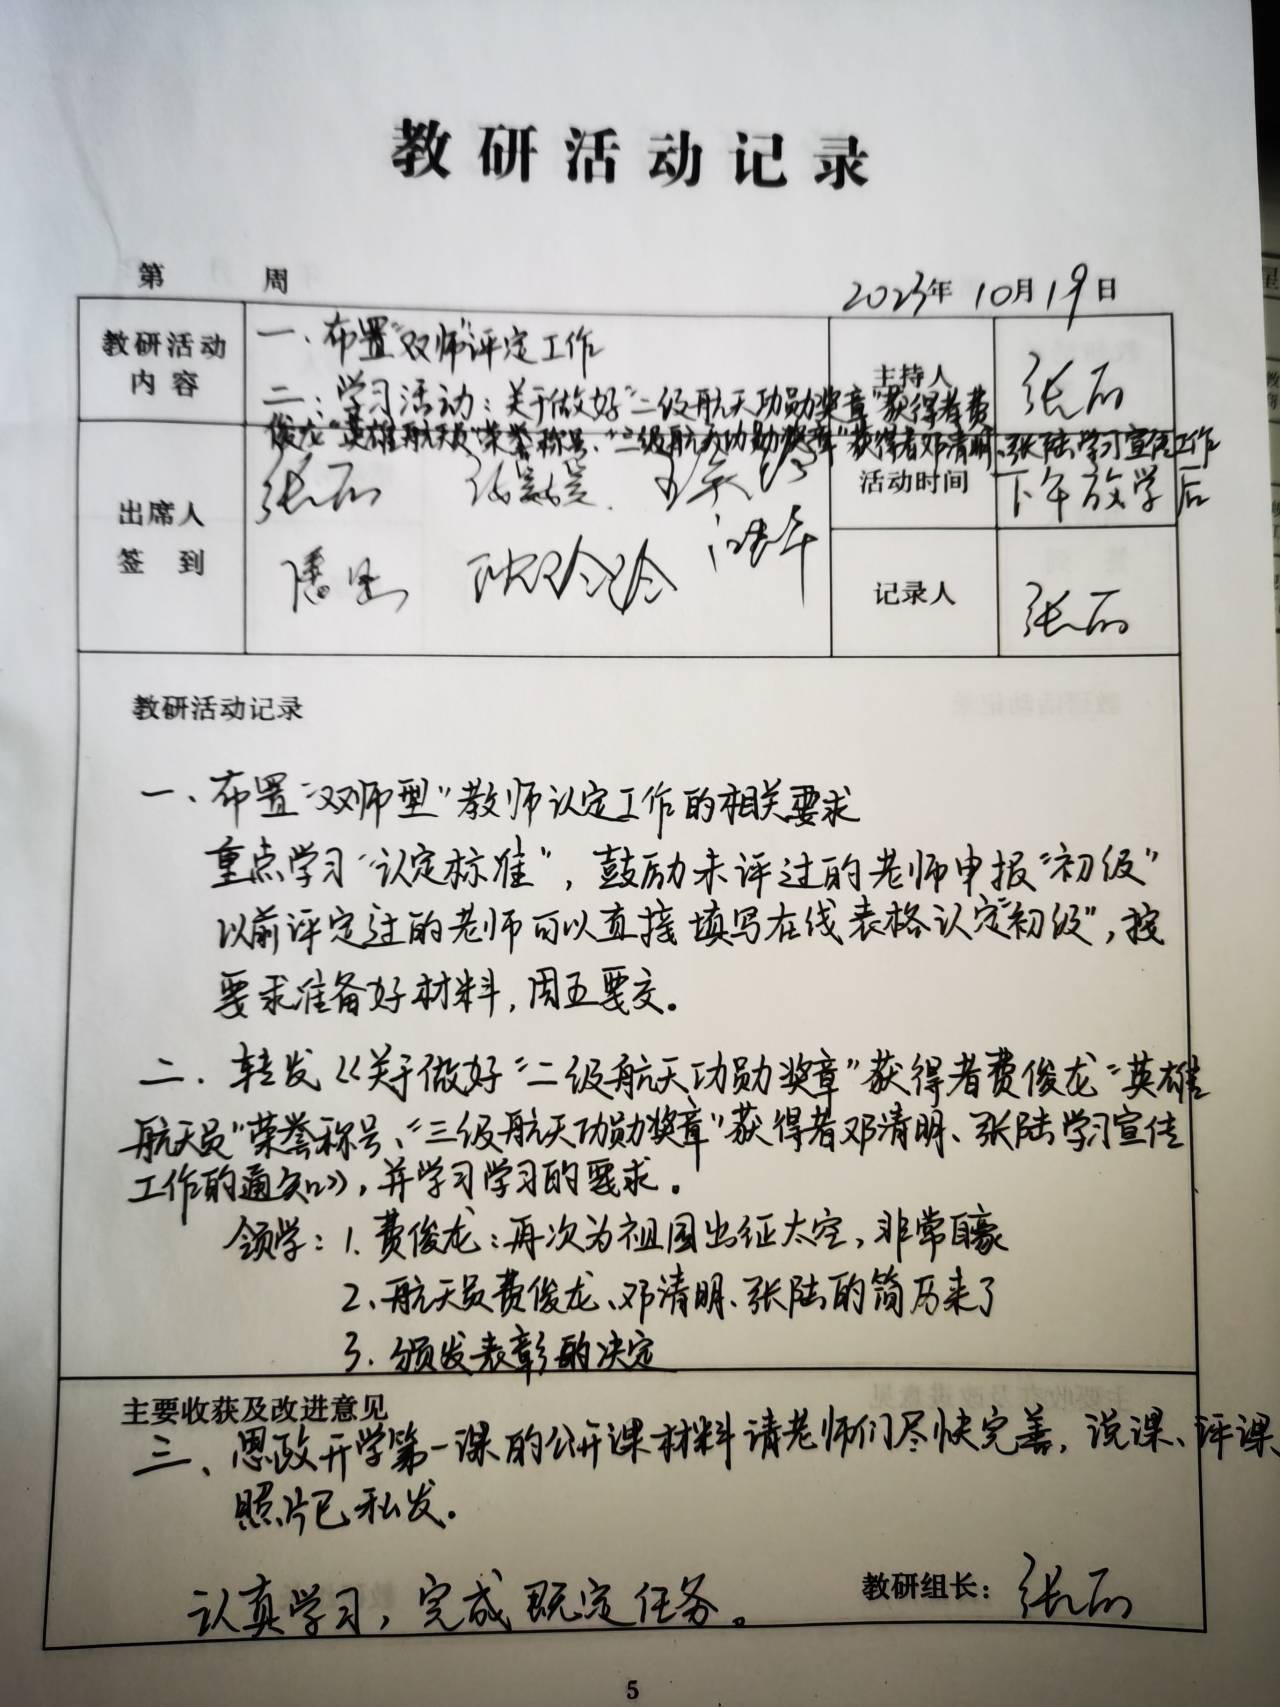 教研活动记录
第 周
2023年10月19日
教研活动内容
一、布置“双师”评定工作
二:学习活动:关于做好“二级航天功勋奖章”获得者费
俊龙“英雄航天员”荣誉称号、“三级航天功勋奖章”获得者邓清明、张陆学习宣传工作
主持人
张丽
出席人签到
张丽
活动时间
下午放学后
记录人
张丽
教研活动记录
一、布置“双师型”教师认定工作的相关要求
重点学习“认定标准”,鼓励未评过的老师申报“初级”
以前评定过的老师可以直接填写在线表格认定“初级”,按
要求准备好材料,周五要交。
二、转发《关于做好“二级航天功勋奖章”获得者费俊龙“英雄
航天员”荣誉称号、“三级航天功勋奖章”获得者邓清明、张陆学习宣传
工作的通知》,并学习学习的要求。
领学:1.费俊龙:再次为祖国出征太空,非常自豪
2、航天员费俊龙、邓清明、张陆的简历来了
3.颁发表彰的决定
主要收获及改进意见
三、思政开学第一课的公开课材料请老师们尽快完善,说课、评课、
照片已私发。
认真学习,完成既定任务。
教研组长:张丽
5